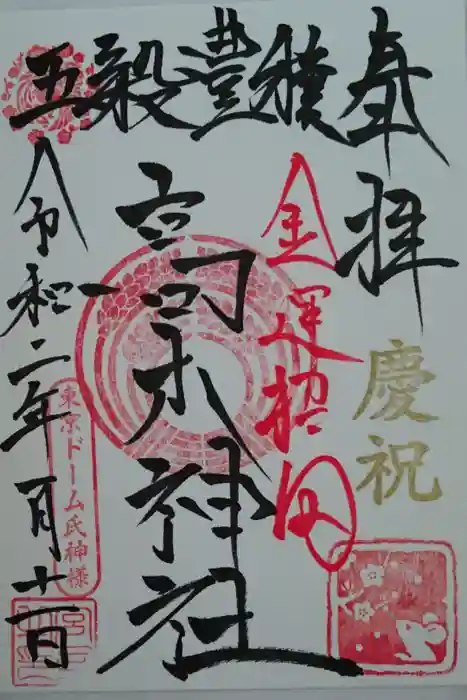 奉拝
慶祝
五穀豊穣
金運招
高木神社
東京ドーム氏神様
令和二年一月十一日